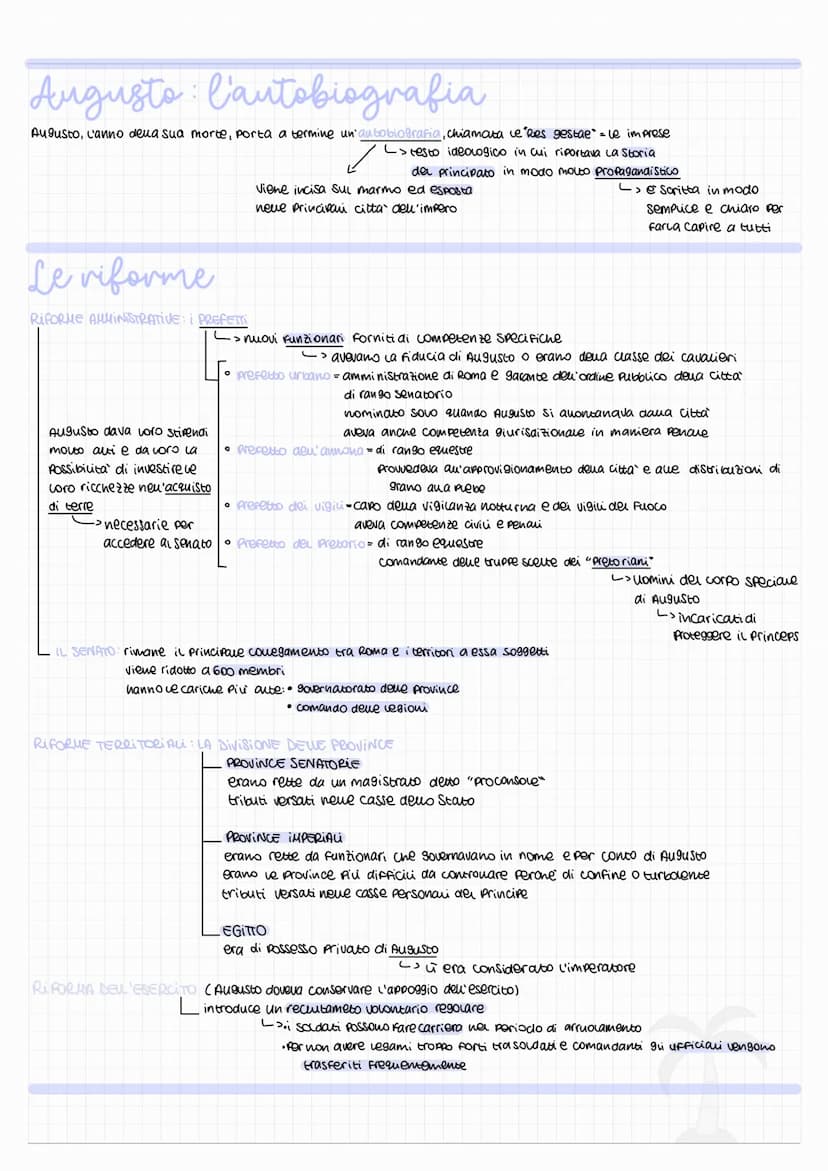 Augusto: l'autobiografia
Augusto, l'anno della sua morte, porta a termine un'autobiografia, chiamata le "Res gestae" = le imprese
↳ testo ideologico in cui riportava la storia
del principato in modo molto propagandistico
viene incisa sul marmo ed esposta
nelle principali città dell'impero
↳ è scritta in modo
semplice e chiaro per
farla capire a tutti
Le riforme
RIFORME AMMINISTRATIVE: i PREFETTI
↳ nuovi funzionari forniti di competenze specifiche
↳ avevano la fiducia di Augusto o erano della classe dei cavalieri
Augusto dava loro stipendi
molto alti e da loro la
possibilità di investire le
loro ricchezze nell'acquisto
di terre
↳ necessarie per
accedere al senato
• Prefetto urbano = amministrazione di Roma e garante dell'ordine pubblico della città
di rango senatorio
nominato solo quando Augusto si allontanava dalla città
aveva anche competenza giurisdizionale in maniera penale
• Prefetto dell'annona = di rango equestre
provvedeva all'approvigionamento della città e alle distribuzioni di
grano alla plebe
• Prefetto dei vigili = capo della vigilanza notturna e dei vigili del fuoco
aveva competenze civili e penali
• Prefetto del Pretorio = di rango equestre
comandante delle truppe scelte dei "pretoriani"
↳ uomini del corpo speciale
di Augusto
↳ incaricati di
proteggere il princeps
IL SENATO: rimane il principale collegamento tra Roma e i territori a essa soggetti
viene ridotto a 600 membri
hanno le cariche più alte: • governatorato delle province
• comando delle legioni
RIFORME TERRITORIALI: LA DIVISIONE DELLE PROVINCE
PROVINCE SENATORIE
erano rette da un magistrato detto "proconsole"
tributi versati nelle casse dello Stato
PROVINCE IMPERIALI
erano rette da funzionari che governavano in nome e per conto di Augusto
erano le province più difficili da controllare perché di confine o turbolente
tributi versati nelle casse personali del principe
EGITTO
era di possesso privato di Augusto
↳ lì era considerato l'imperatore
RIFORMA DELL'ESERCITO (Augusto doveva conservare l'appoggio dell'esercito)
introduce un reclutameto volontario regolare
↳ • i soldati possono fare carriera nel periodo di arruolamento
• per non avere legami troppo forti tra soldati e comandanti gli ufficiali vengono
trasferiti frequentemente